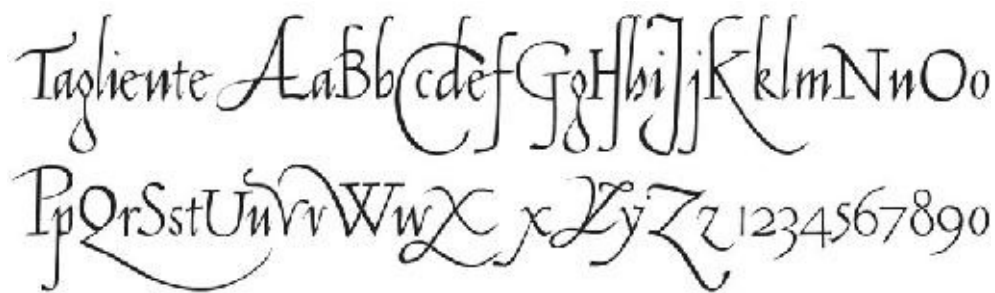 Tagliente AaBbCcdefGgHhiJjKklmNnOo
PpQrSstUuVvWwXxYyZz 1234567890